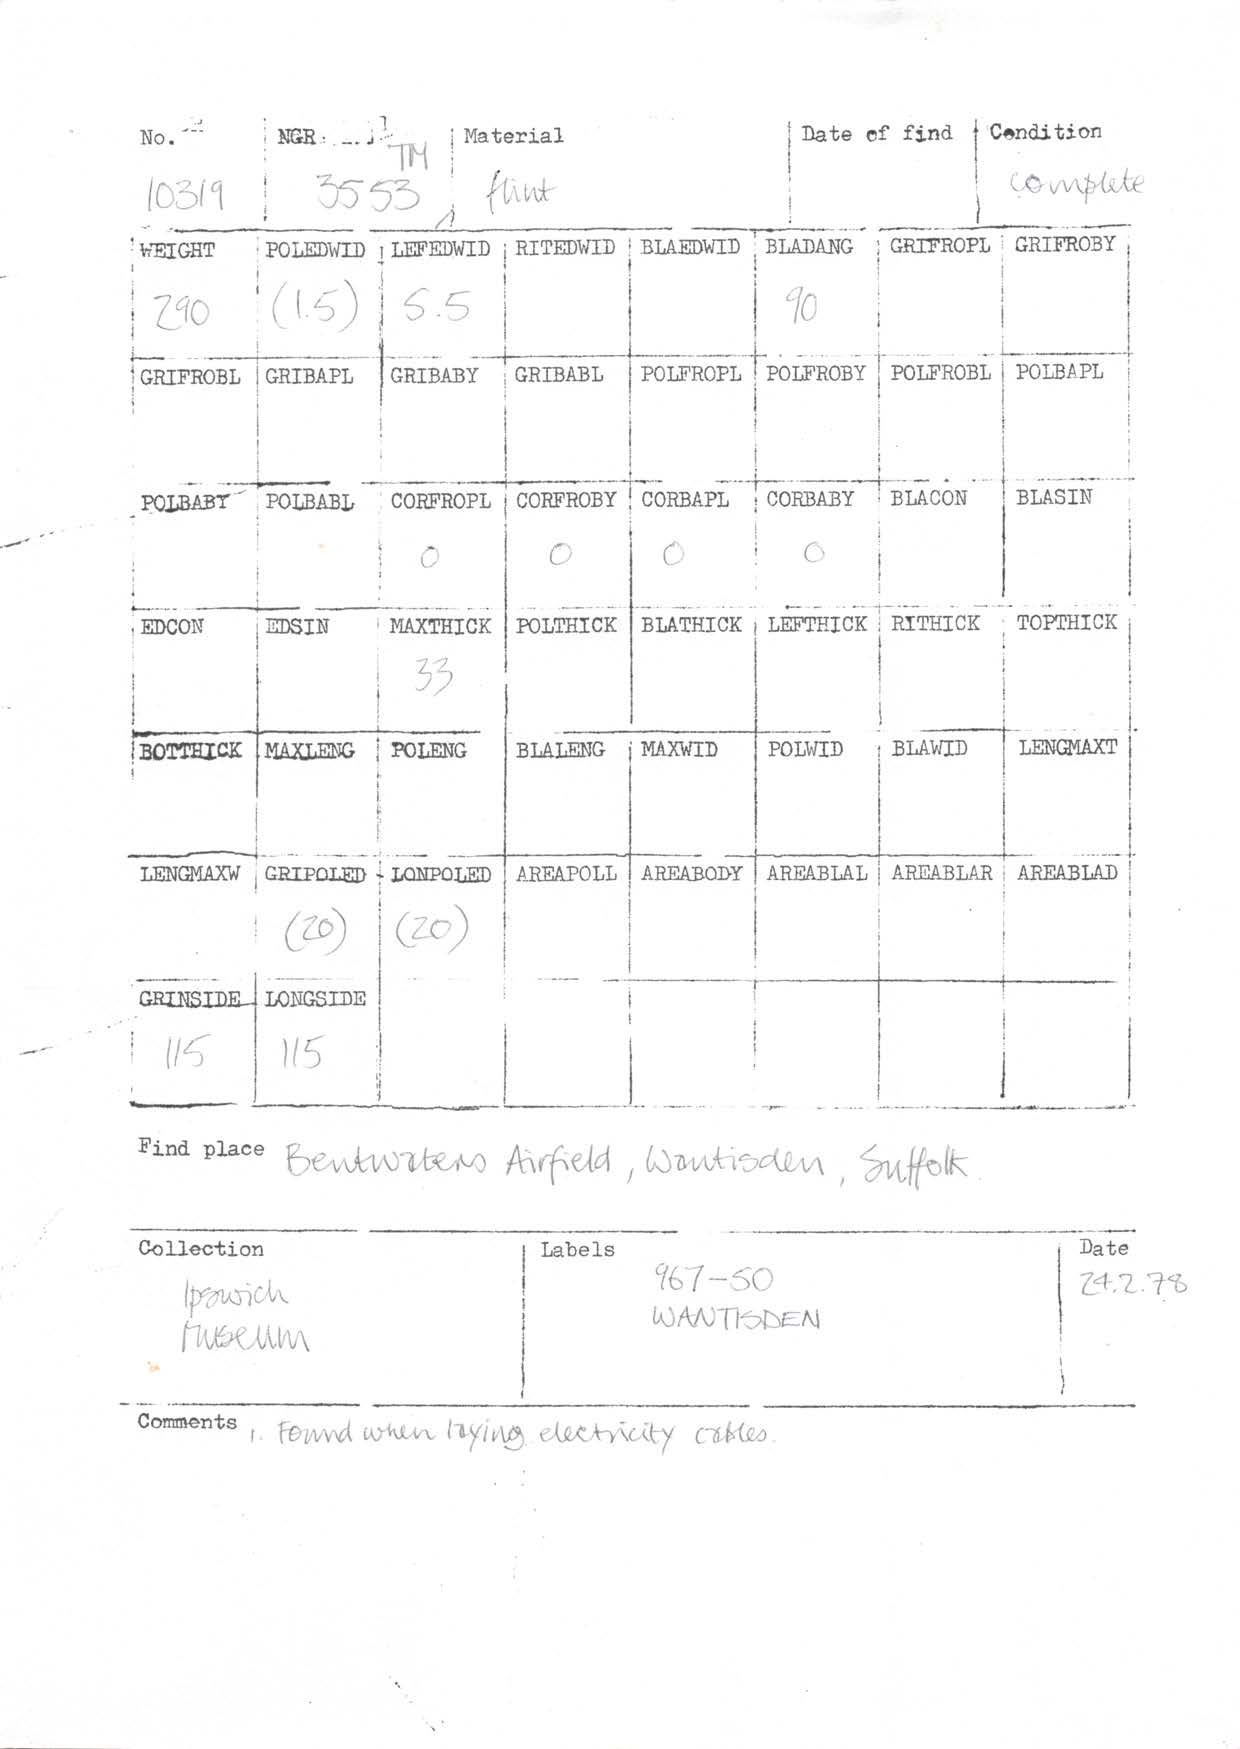 No. NGR Material Date of find Condition
TM
10319 3553 flint complete
WEIGHT POLEDWID LEFEDWID RITEDWID BLAEDWID BLADANG GRIFROPL GRIFROBY
290 (1.5) 5.5 90
GRIFROBL GRIBAPL GRIBABY GRIBABL POLFROPL POLFROBY POLFROBL POLBAPL
POLBABY POLBABL CORFROPL CORFROBY CORBAPL CORBABY BLACON BLASIN
0 0 0 0
EDCON EDSIN MAXTHICK POLTHICK BLATHICK LEFTHICK RITHICK TOPTHICK
33
BOTTHICK MAXLENG POLENG BLALENG MAXWID POLWID BLAWID LENGMAXT
LENGMAXW GRIPOLED LONPOLED AREAPOLL AREABODY AREABLAL AREABLAR AREABLAD
(20) (20)
GRINSIDE LONGSIDE
115 115
Find place Bentwaters Airfield, Wantisden, Suffolk.
Collection Labels Date
967-50 24.2.78
Ipswich
WANTISDEN
Museum
Comments 1. Found when laying electricity cables.